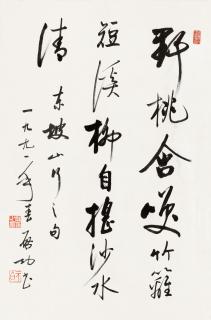 野桃含咲竹籬
短溪柳自搖沙水
清 東坡山行之句
一九九一年夏 啟功書